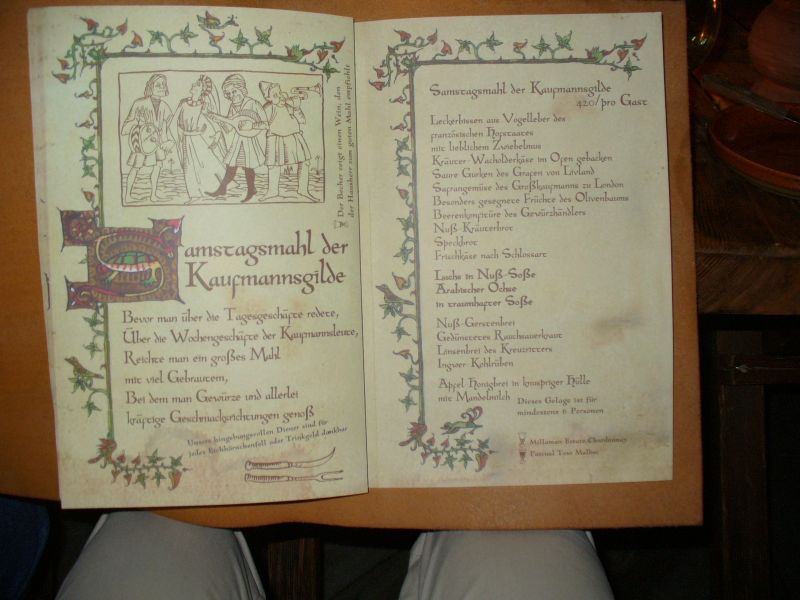 Der Becher zeigt einen Wein, den
der Hausherr zum guten Mahl empfiehlt
Samstagsmahl der
Kaufmannsgilde
Bevor man über die Tagesgeschäfte redete,
Über die Wochengeschäfte der Kaufmannsleute,
Reichte man ein großes Mahl
mit viel Gebrautem,
Bei dem man Gewürze und allerlei
kräftige Geschmacksrichtungen genoß
Unsere hingebungsvollen Diener sind für
jedes Eichhörnchenfell oder Trinkgeld dankbar
Samstagsmahl der Kaufmannsgilde
420/pro Gast
Leckerbissen aus Vogelleber des
französischen Hofstaates
mit lieblichem Zwiebelmus
Kräuter Wacholderkäse im Ofen gebacken
Saure Gurken des Grafen von Livland
Safrangemüse des Großkaufmanns zu London
Besonders gesegnete Früchte des Olivenbaums
Beerenkonfitüre des Gewürzhändlers
Nuß-Kräuterbrot
Speckbrot
Frischkäse nach Schlossart
Lachs in Nuß-Soße
Arabischer Ochse
in traumhafter Soße
Nuß-Gerstenbrei
Gedünstetes Rauchsauerkraut
Linsenbrei des Kreuzritters
Ingwer Kohlrüben
Apfel Honigbrei in knuspriger Hülle
mit Mandelmilch
Dieses Gelage ist für
mindestens 6 Personen
Millaman Estate Chardonnay
Pascual Toso Malbec